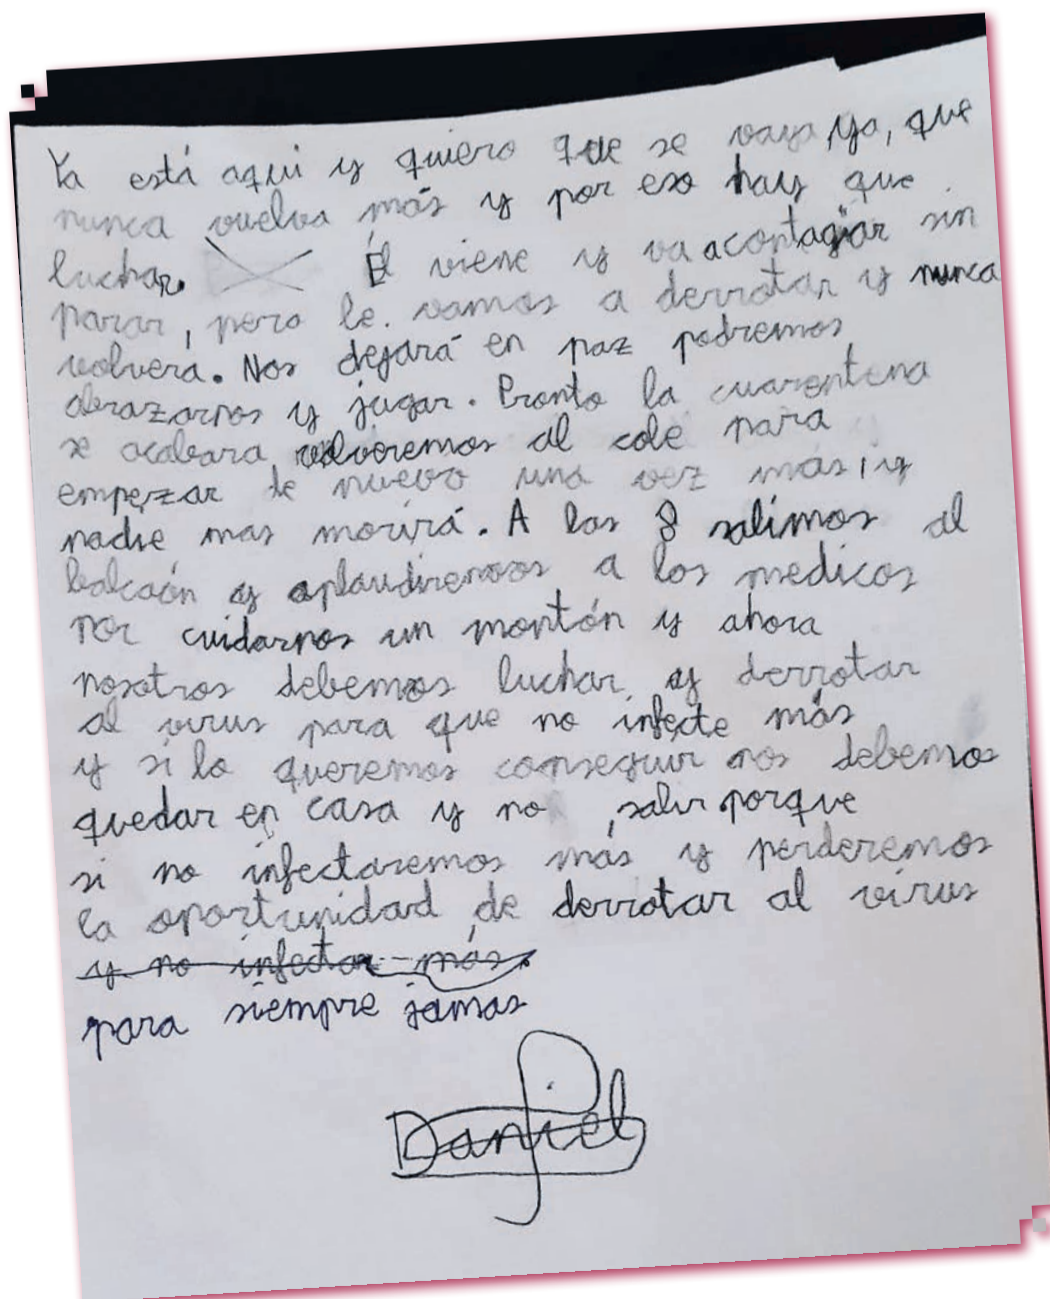 Ya está aqui y quiero que se vaya ya, que
nunca vuelva más y por eso hay que
luchar. El viene y va a contagiar sin
parar, pero le vamos a derrotar y nunca
volverá. Nos dejará en paz podremos
abrazarnos y jugar. Pronto la cuarentena
se acabara, volveremos al cole para
empezar de nuevo una vez más, y
nadie mas morirá. A las 8 salimos al
balcaón y aplaudiremos a los medicos
por cuidarnos un montón y ahora
nosotros debemos luchar y derrotar
al virus para que no infecte más
y si lo queremos conseguir nos debemos
quedar en casa y no salir porque
si no infectaremos más y perderemos
la oportunidad de derrotar al virus
y no infectar más.
para siempre jamas
Daniel